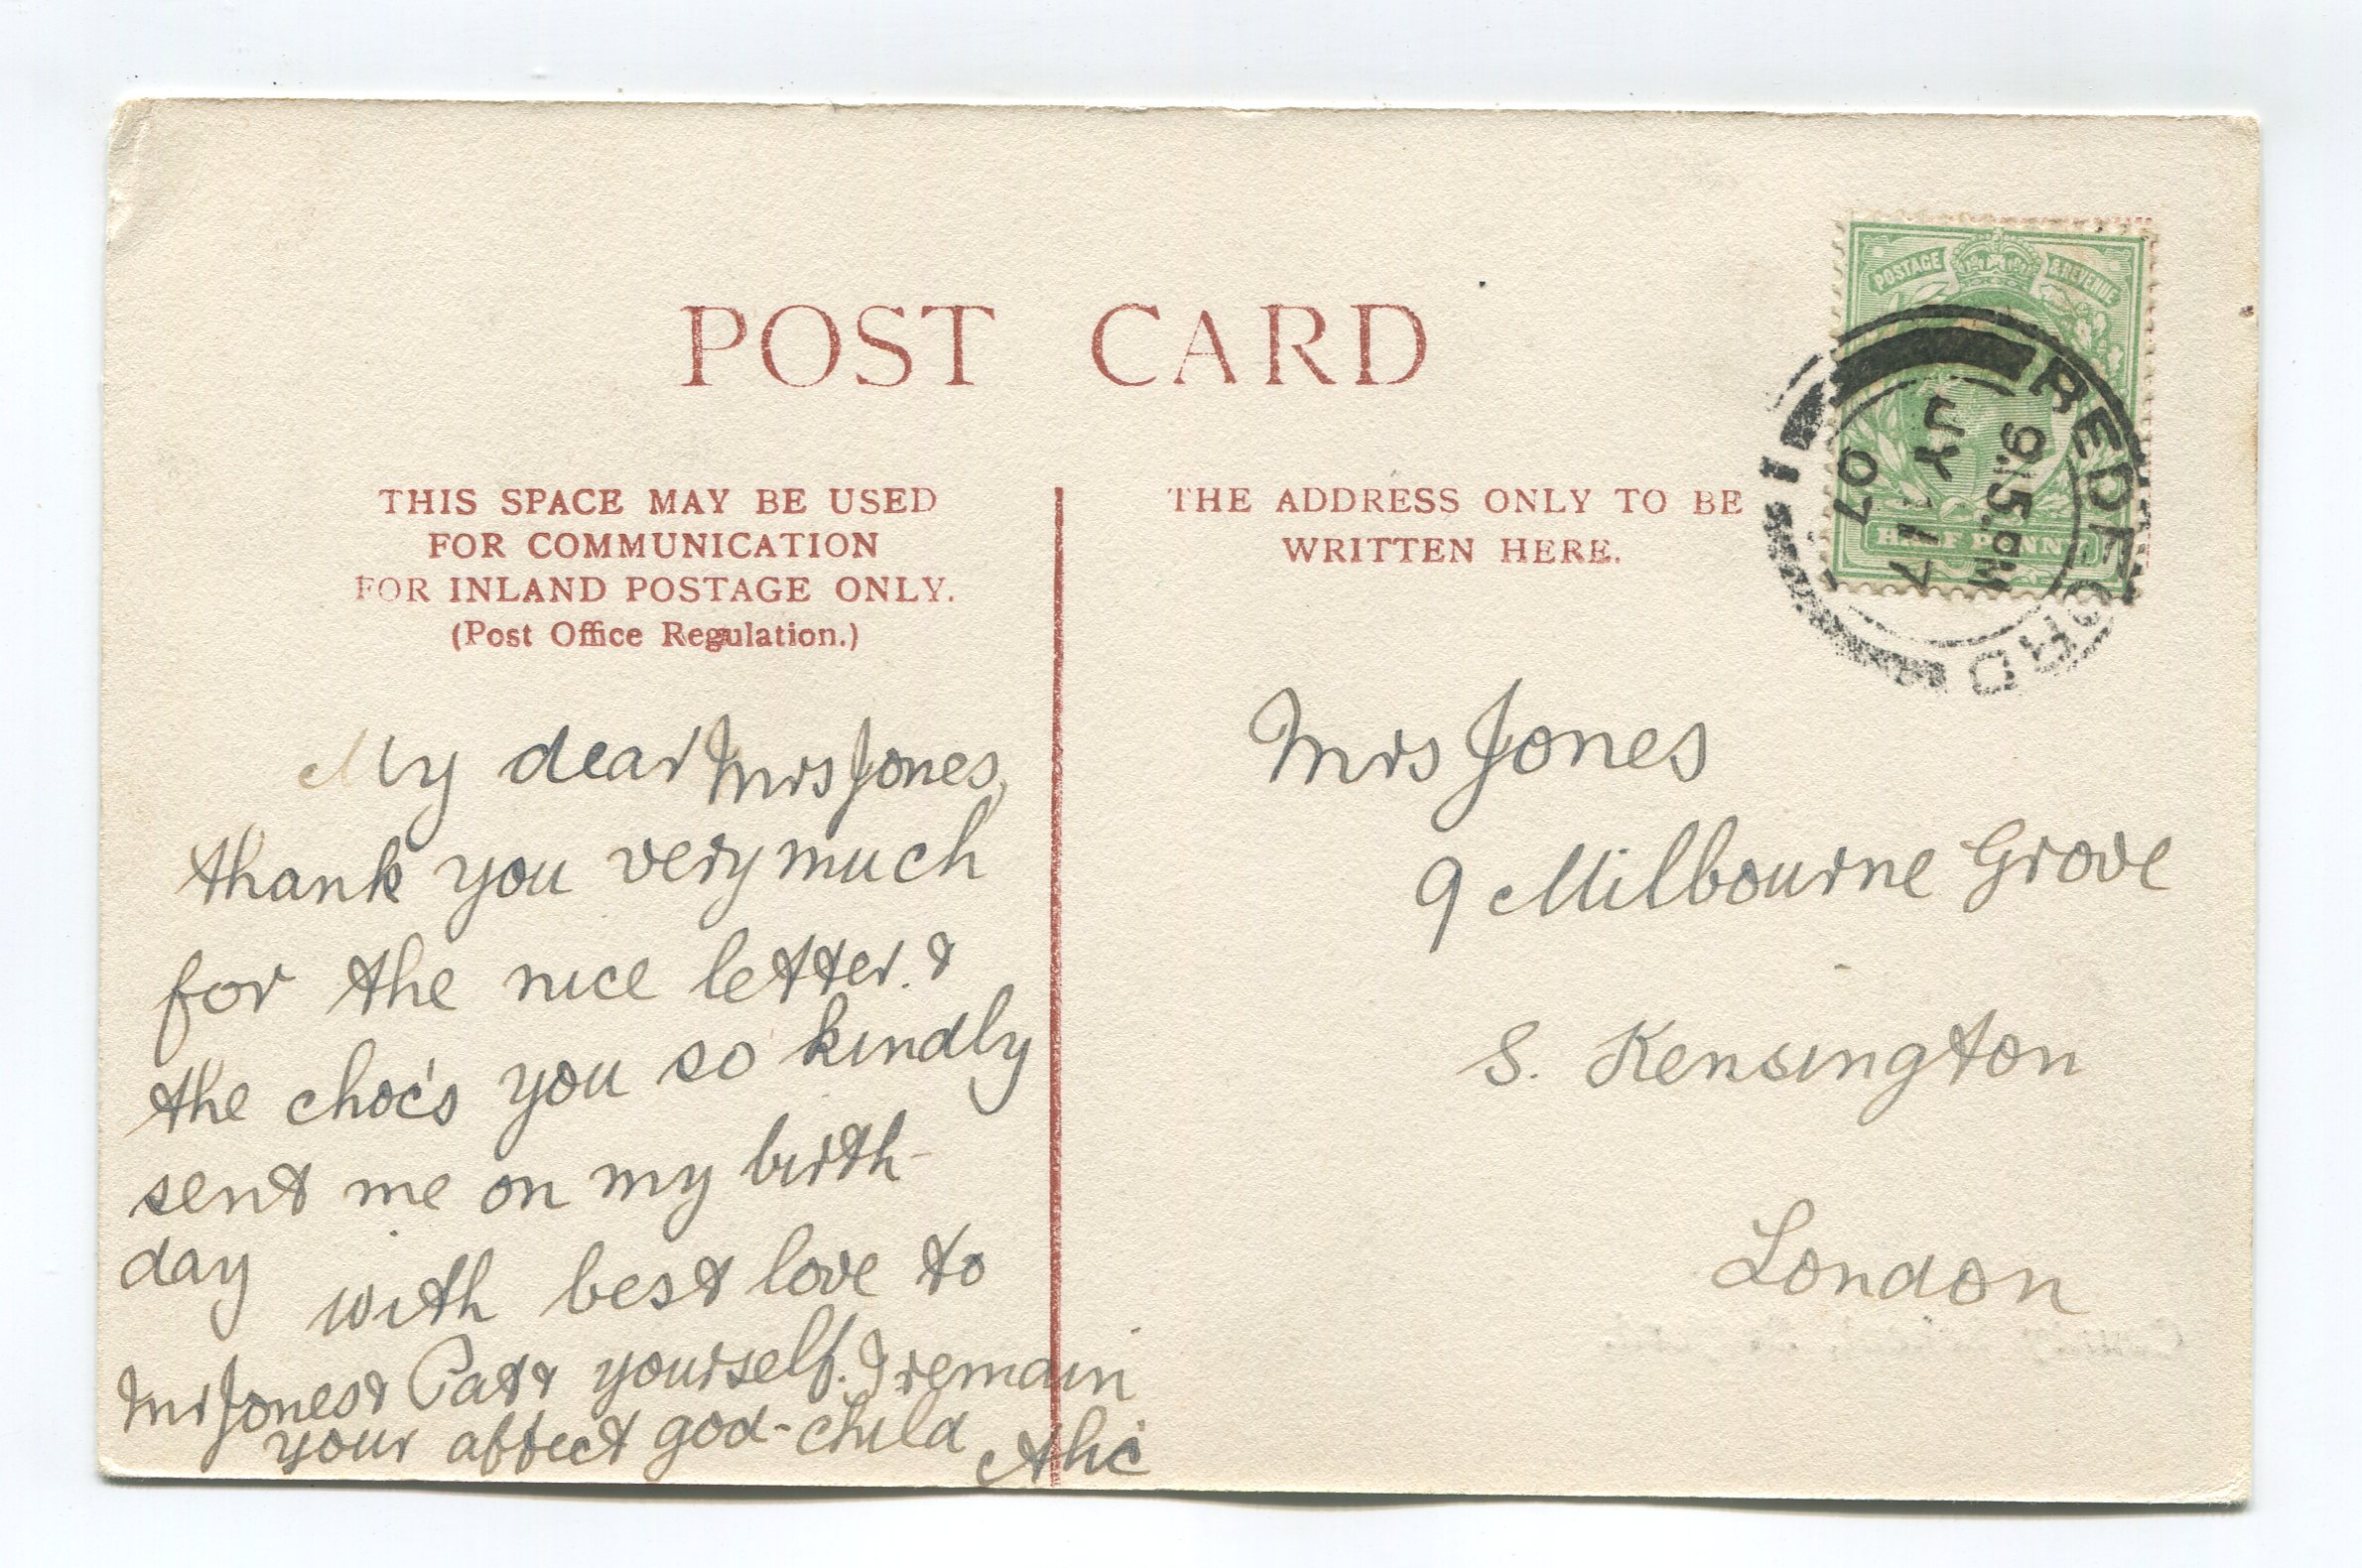 POST CARD
THIS SPACE MAY BE USED
FOR COMMUNICATION
FOR INLAND POSTAGE ONLY.
(Post Office Regulation.)
THE ADDRESS ONLY TO BE
WRITTEN HERE.
POSTAGE & REVENUE
HALF PENNY
BEDFORD
9.15.PM
JY 17
07
My dear Mrs Jones,
thank you very much
for the nice letter. &
the choc's you so kindly
sent me on my birth-
day with best love to
Mr Jones & Pat & yourself. I remain
your affect god-child
Mrs Jones
9 Milbourne Grove
S. Kensington
London